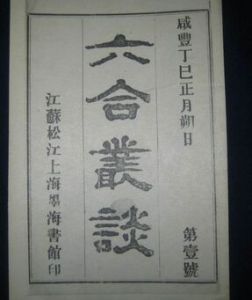 咸豐丁巳正月朔日
第壹號
六合叢談
江蘇松江上海墨海書館印